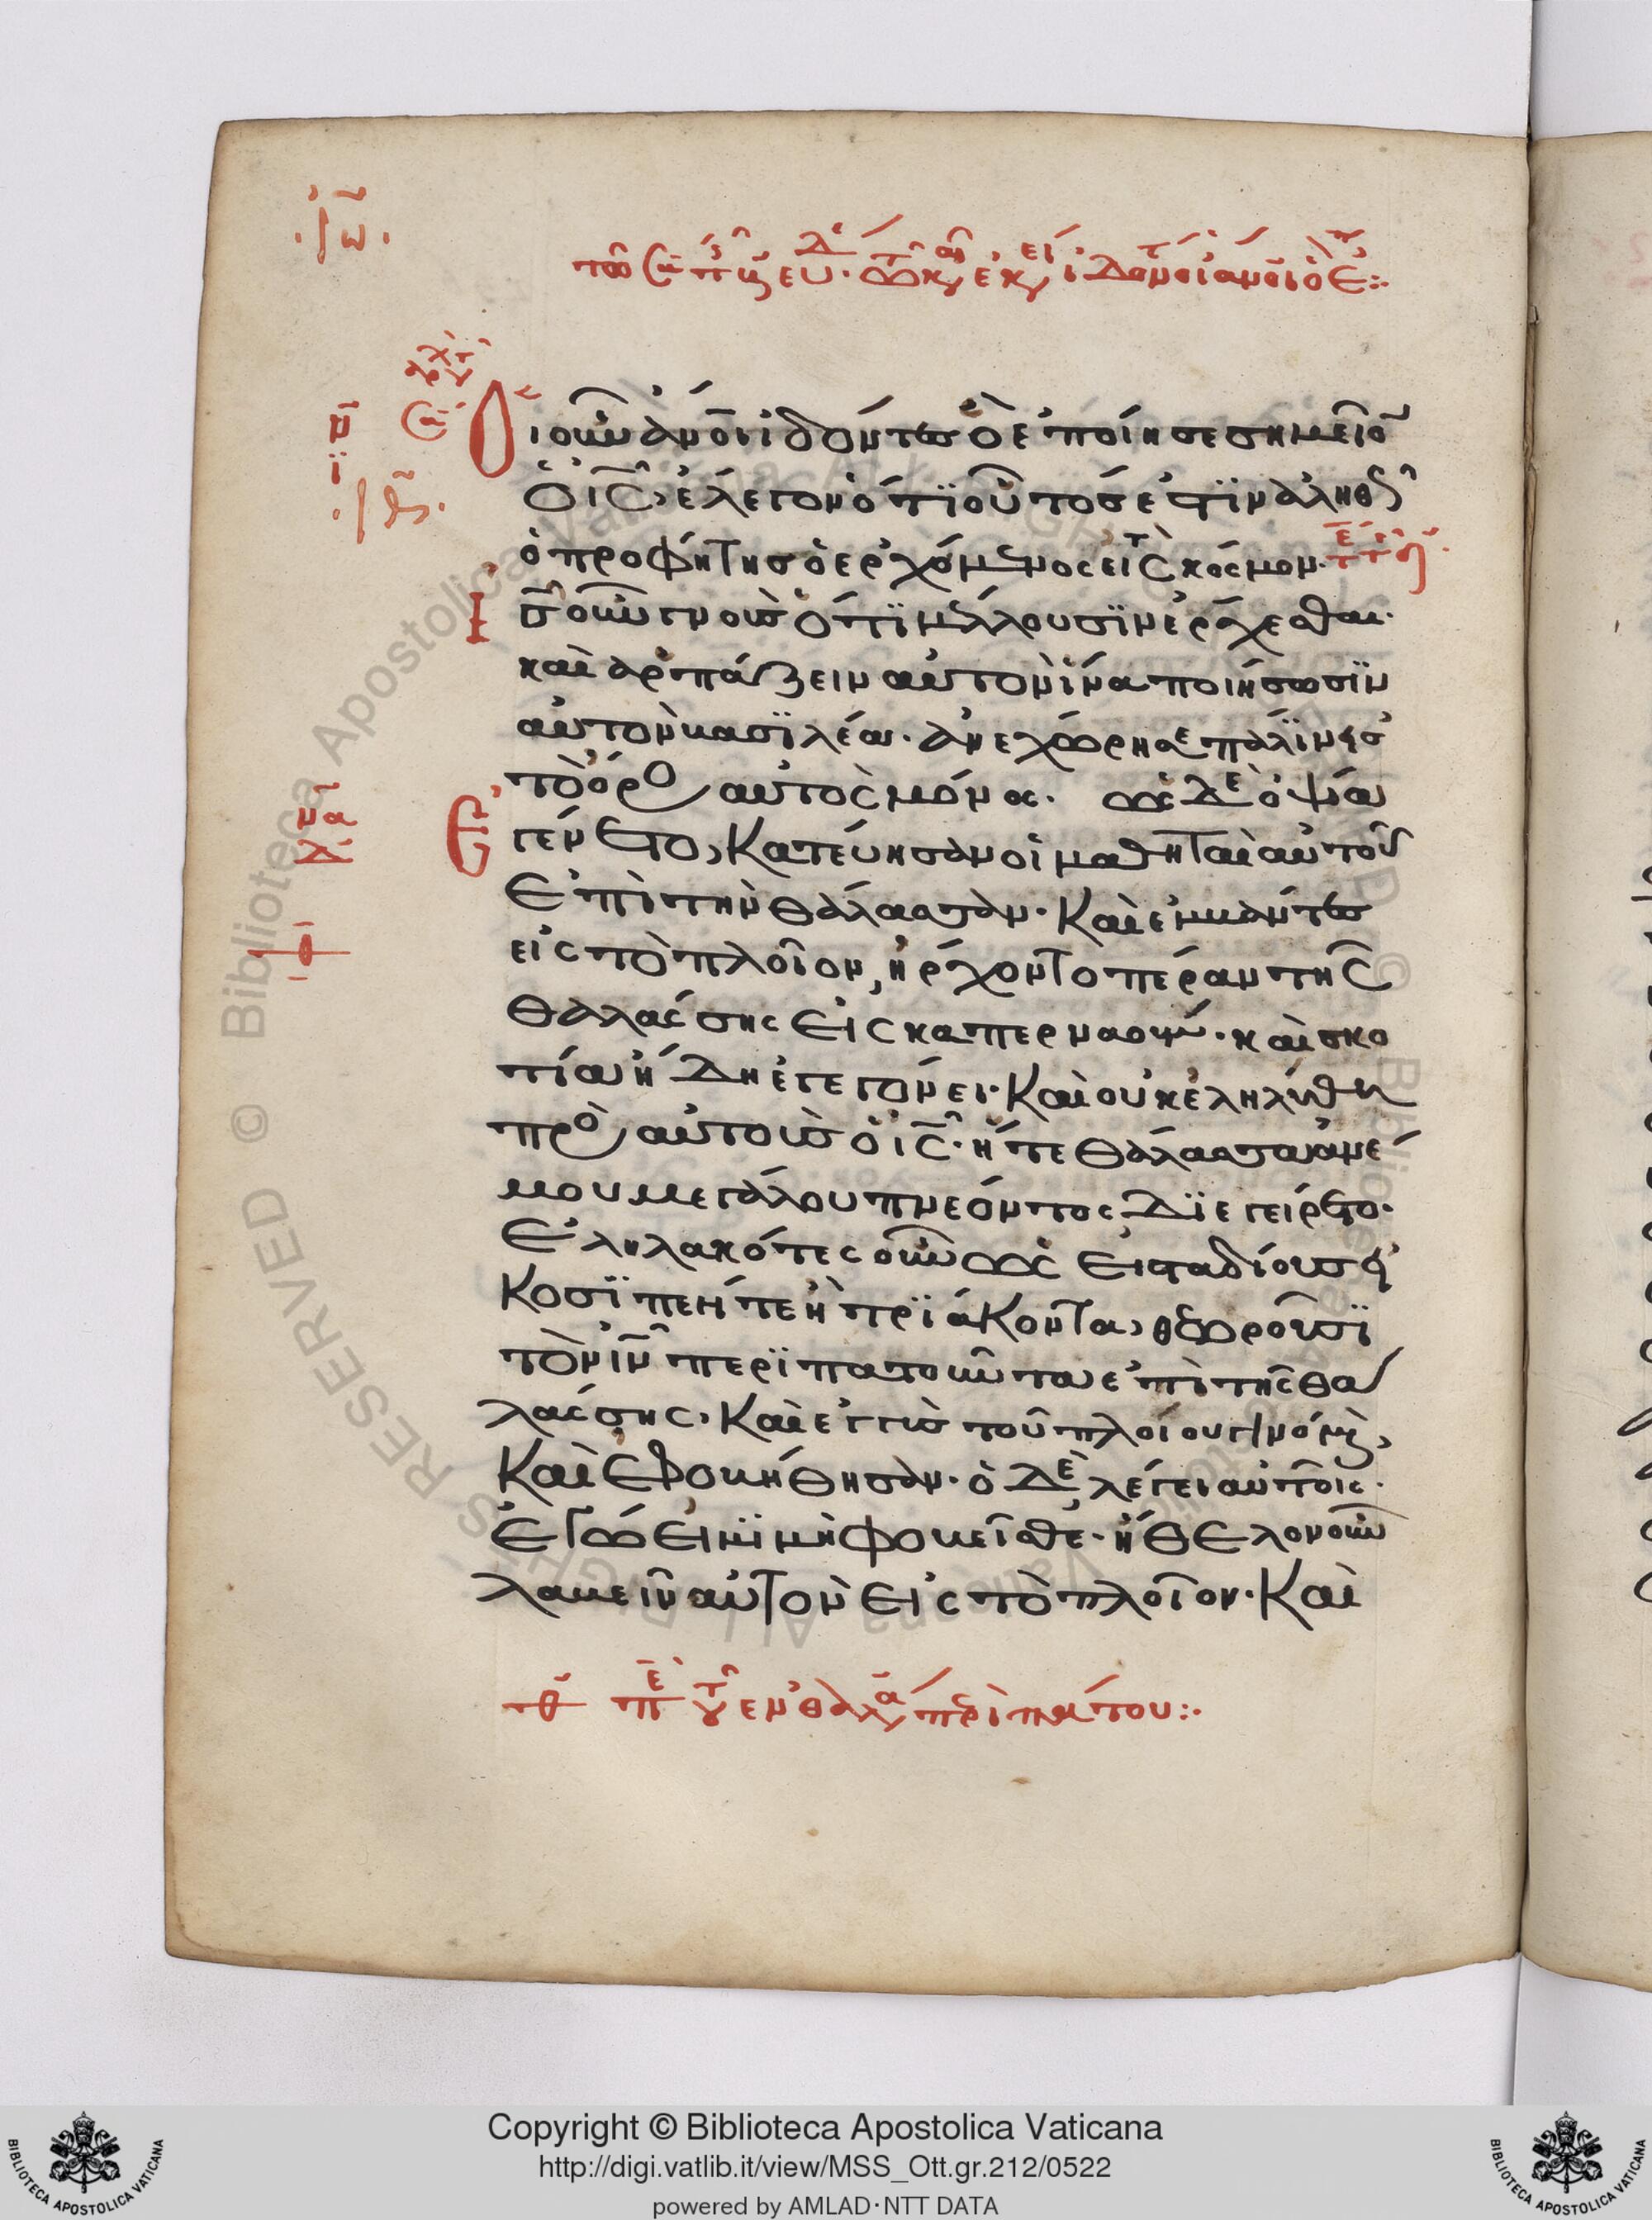 Οἱ οὖν ἄνοι ἰδόντες ὃ ἐποίησε σημεῖον
ὁ ις, ἔλεγον ὅτι οὗτος ἐστιν ἀληθῶς
ὁ προφήτης ὁ ερχόμενος εἰς τὸν κόσμον.
ις οὖν γνοὺς ὅτι μέλλουσιν ἔρχεσθαι.
καὶ ἁρπάζειν αὐτὸν ἵνα ποιήσωσιν
αὐτὸν βασιλέα. ἀνεχώρησε πάλιν εἰς
τὸ όρος αὐτὸς μόνος. ὡς δὲ ὀψία
ἐγένετο, Κατέβησαν οἱ μαθηταὶ αὐτοῦ
ἐπὶ τὴν θάλασσαν. Καὶ ἐμβάντες
εἰς τὸ πλοῖον, ἤρχοντο πέραν τῆς
θαλάσσης εἰς καπερναούμ. καὶ σκο
τία ἤδη ἐγεγόνει. Καὶ οὐκ ἐληλύθει
πρὸς αὐτοὺς ὁ ις. ἥ τε θάλασσα ἀνέ
μου μεγάλου πνέοντος διεγείρετο.
Ἐληλακότες οὖν ὡς ἐι σταδίους εἰ
κοσι πέντε ἢ τριάκοντα, θεωροῦσι
τὸν ιν περιπατοῦντα ἐπὶ τῆς θα
λάσσης. Καὶ ἐγγὺς τοῦ πλοίου γινόμενον,
Καὶ ἐφοβήθησαν. ὁ δὲ λέγει αὐτοῖς.
Ἐγώ εἰμι μὴ φοβεῖσθε. ἤθελον οὖν
λαβεῖν αὐτὸν εἰς τὸ πλοῖον. Καὶ
Copyright © Biblioteca Apostolica Vaticana
http://digi.vatlib.it/view/MSS_Ott.gr.212/0522
powered by AMLAD·NTT DATA
BIBLIOTECA APOSTOLICA VATICANA
BIBLIOTECA APOSTOLICA VATICANA